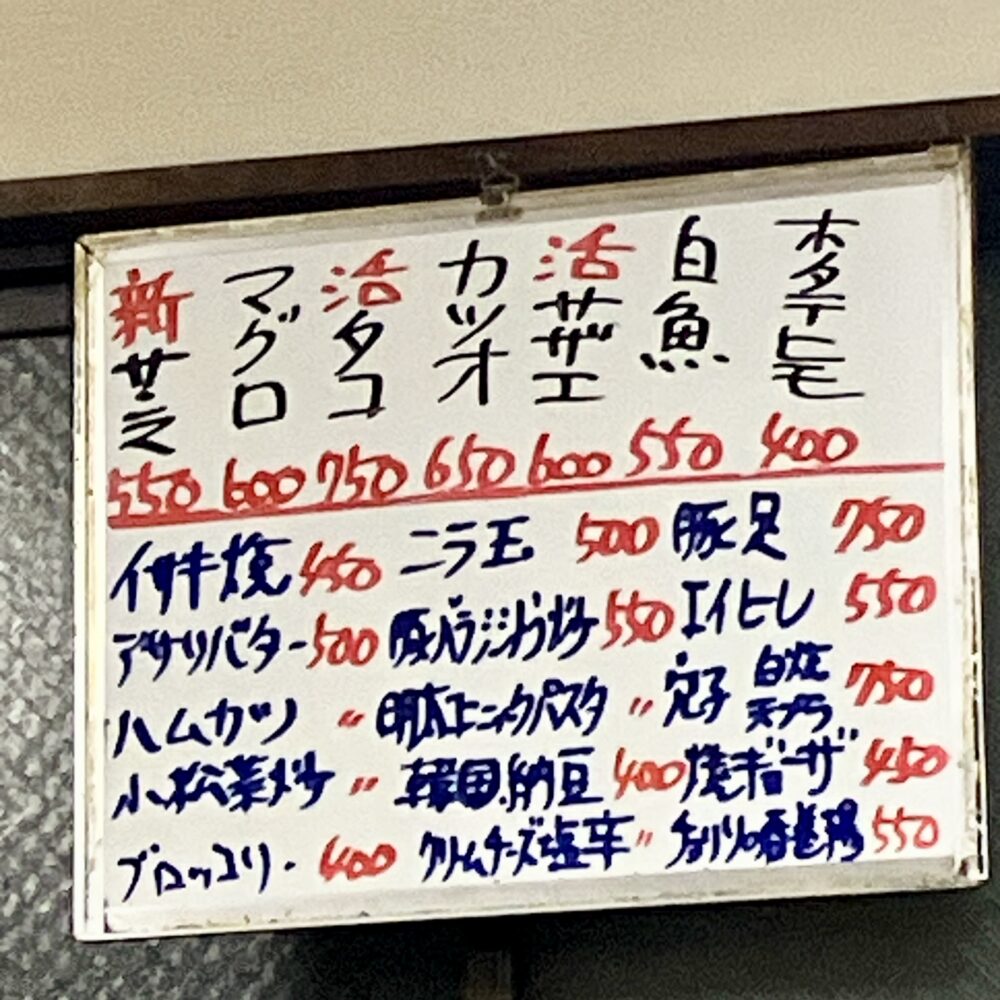 ホタテヒモ 400
白魚 550
活サザエ 600
カツオ 650
活タコ 750
マグロ 600
新サンマ 550
イサキ焼 450
アサリバター 500
ハムカツ 〃
小松菜炒 〃
ブロッコリー 400
ニラ玉 500
豚バラ 550
明太 パスタ 〃
韓国納豆 400
クリームチーズ塩辛 〃
豚足 750
エイヒレ 550
穴子 白焼 天プラ 750
焼ギョーザ 450
550